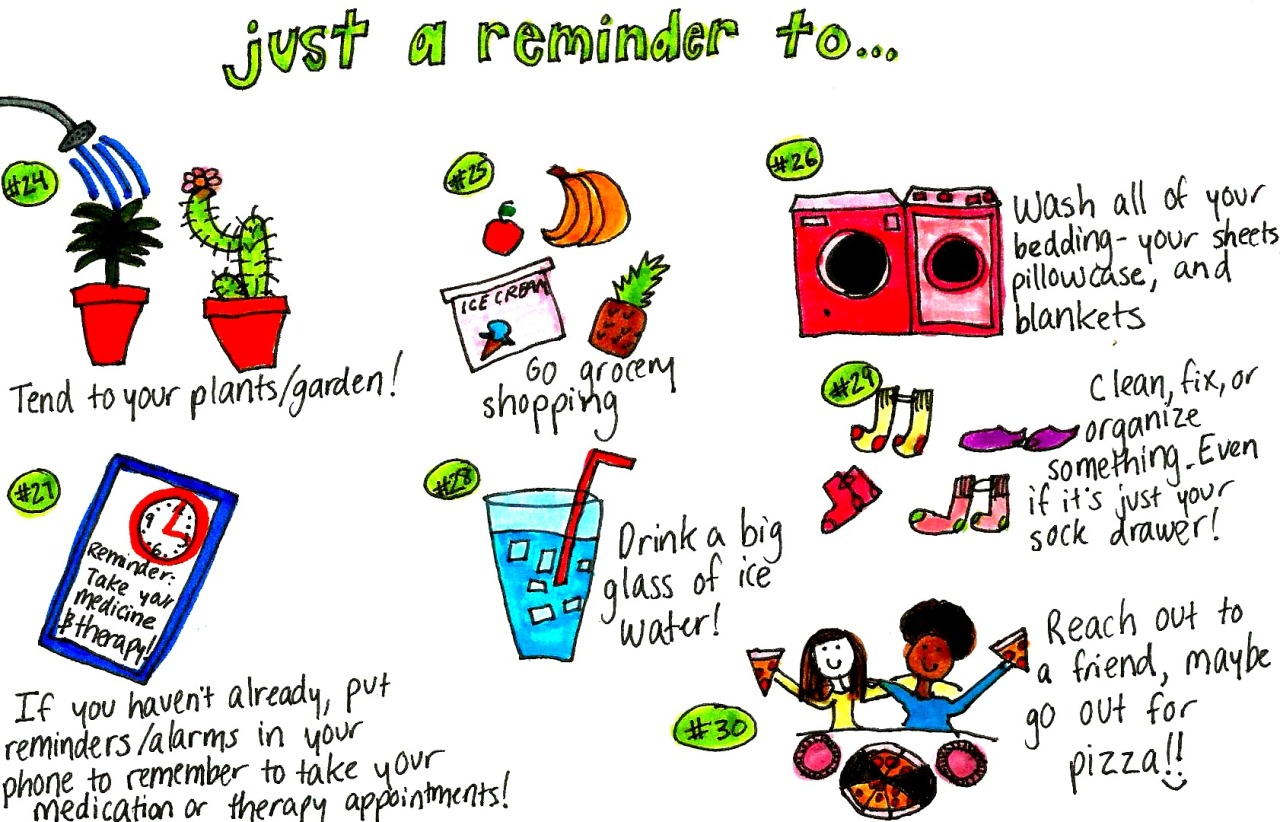 just a reminder to...
#24
Tend to your plants/garden!
#25
ICE CREAM
Go grocery
shopping
#26
Wash all of your
bedding- your sheets,
pillowcase, and
blankets
#27
9
6
Reminder:
Take your
medicine
& therapy!
If you haven't already, put
reminders/alarms in your
phone to remember to take your
medication or therapy appointments!
#28
Drink a big
glass of ice
water!
#29
Clean, fix, or
organize
something. Even
if it's just your
sock drawer!
#30
Reach out to
a friend, maybe
go out for
pizza!!